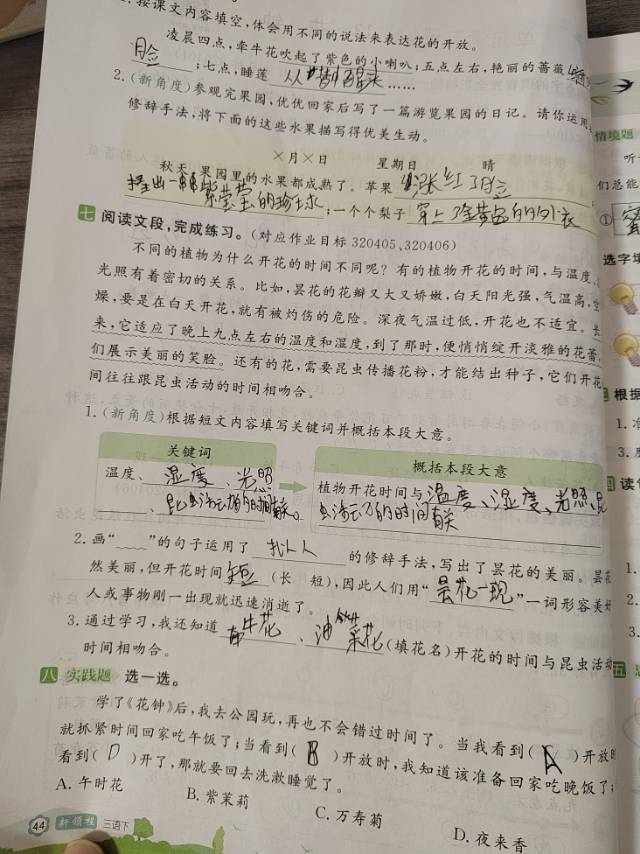 按课文内容填空,体会用不同的说法来表达花的开放。
凌晨四点,牵牛花吹起了紫色的小喇叭;五点左右,艳丽的蔷薇
脸;七点,睡莲从梦中醒来……
2.(新角度)参观完果园,优优回家后写了一篇游览果园的日记。请你运用
修辞手法,将下面的这些水果描写得优美生动。
×月×日 星期日 晴
秋天,果园里的水果都成熟了。苹果涨红了脸
的珍珠;一个个梨子穿上了金黄色的外衣
七 阅读文段,完成练习。(对应作业目标 320405、320406)
不同的植物为什么开花的时间不同呢?有的植物开花的时间,与温度、
光照有着密切的关系。比如,昙花的花瓣又大又娇嫩,白天阳光强,气温高,空
燥,要是在白天开花,就有被灼伤的危险。深夜气温过低,开花也不适宜。长
来,它适应了晚上九点左右的温度和湿度,到了那时,便悄悄绽开淡雅的花蕾,
们展示美丽的笑脸。还有的花,需要昆虫传播花粉,才能结出种子,它们开花
间往往跟昆虫活动的时间相吻合。
1.(新角度)根据短文内容填写关键词并概括本段大意。
关键词
温度、湿度、光照
、昆虫活动的时间有关。
概括本段大意
植物开花时间与温度、湿度、光照、昆
虫活动的时间有关
2.画“﹏﹏”的句子运用了拟人的修辞手法,写出了昙花的美丽。昙花
然美丽,但开花时间短(长 短),因此人们用“昙花一现”一词形容美好
人或事物刚一出现就迅速消逝了。
3.通过学习,我还知道牵牛花、油菜花(填花名)开花的时间与昆虫活动
时间相吻合。
八 实践题 选一选。
学了《花钟》后,我去公园玩,再也不会错过时间了。当我看到(A)开放时
就抓紧时间回家吃午饭了;当看到(B)开放时,我知道该准备回家吃晚饭了;
看到(D)开了,那就要回去洗漱睡觉了。
A.午时花 B.紫茉莉 C.万寿菊 D.夜来香
44 新领程 三语下
情境题
听
们总能
①蜜
选字填
根据
1.
3.
读
1.
2.
3.
五